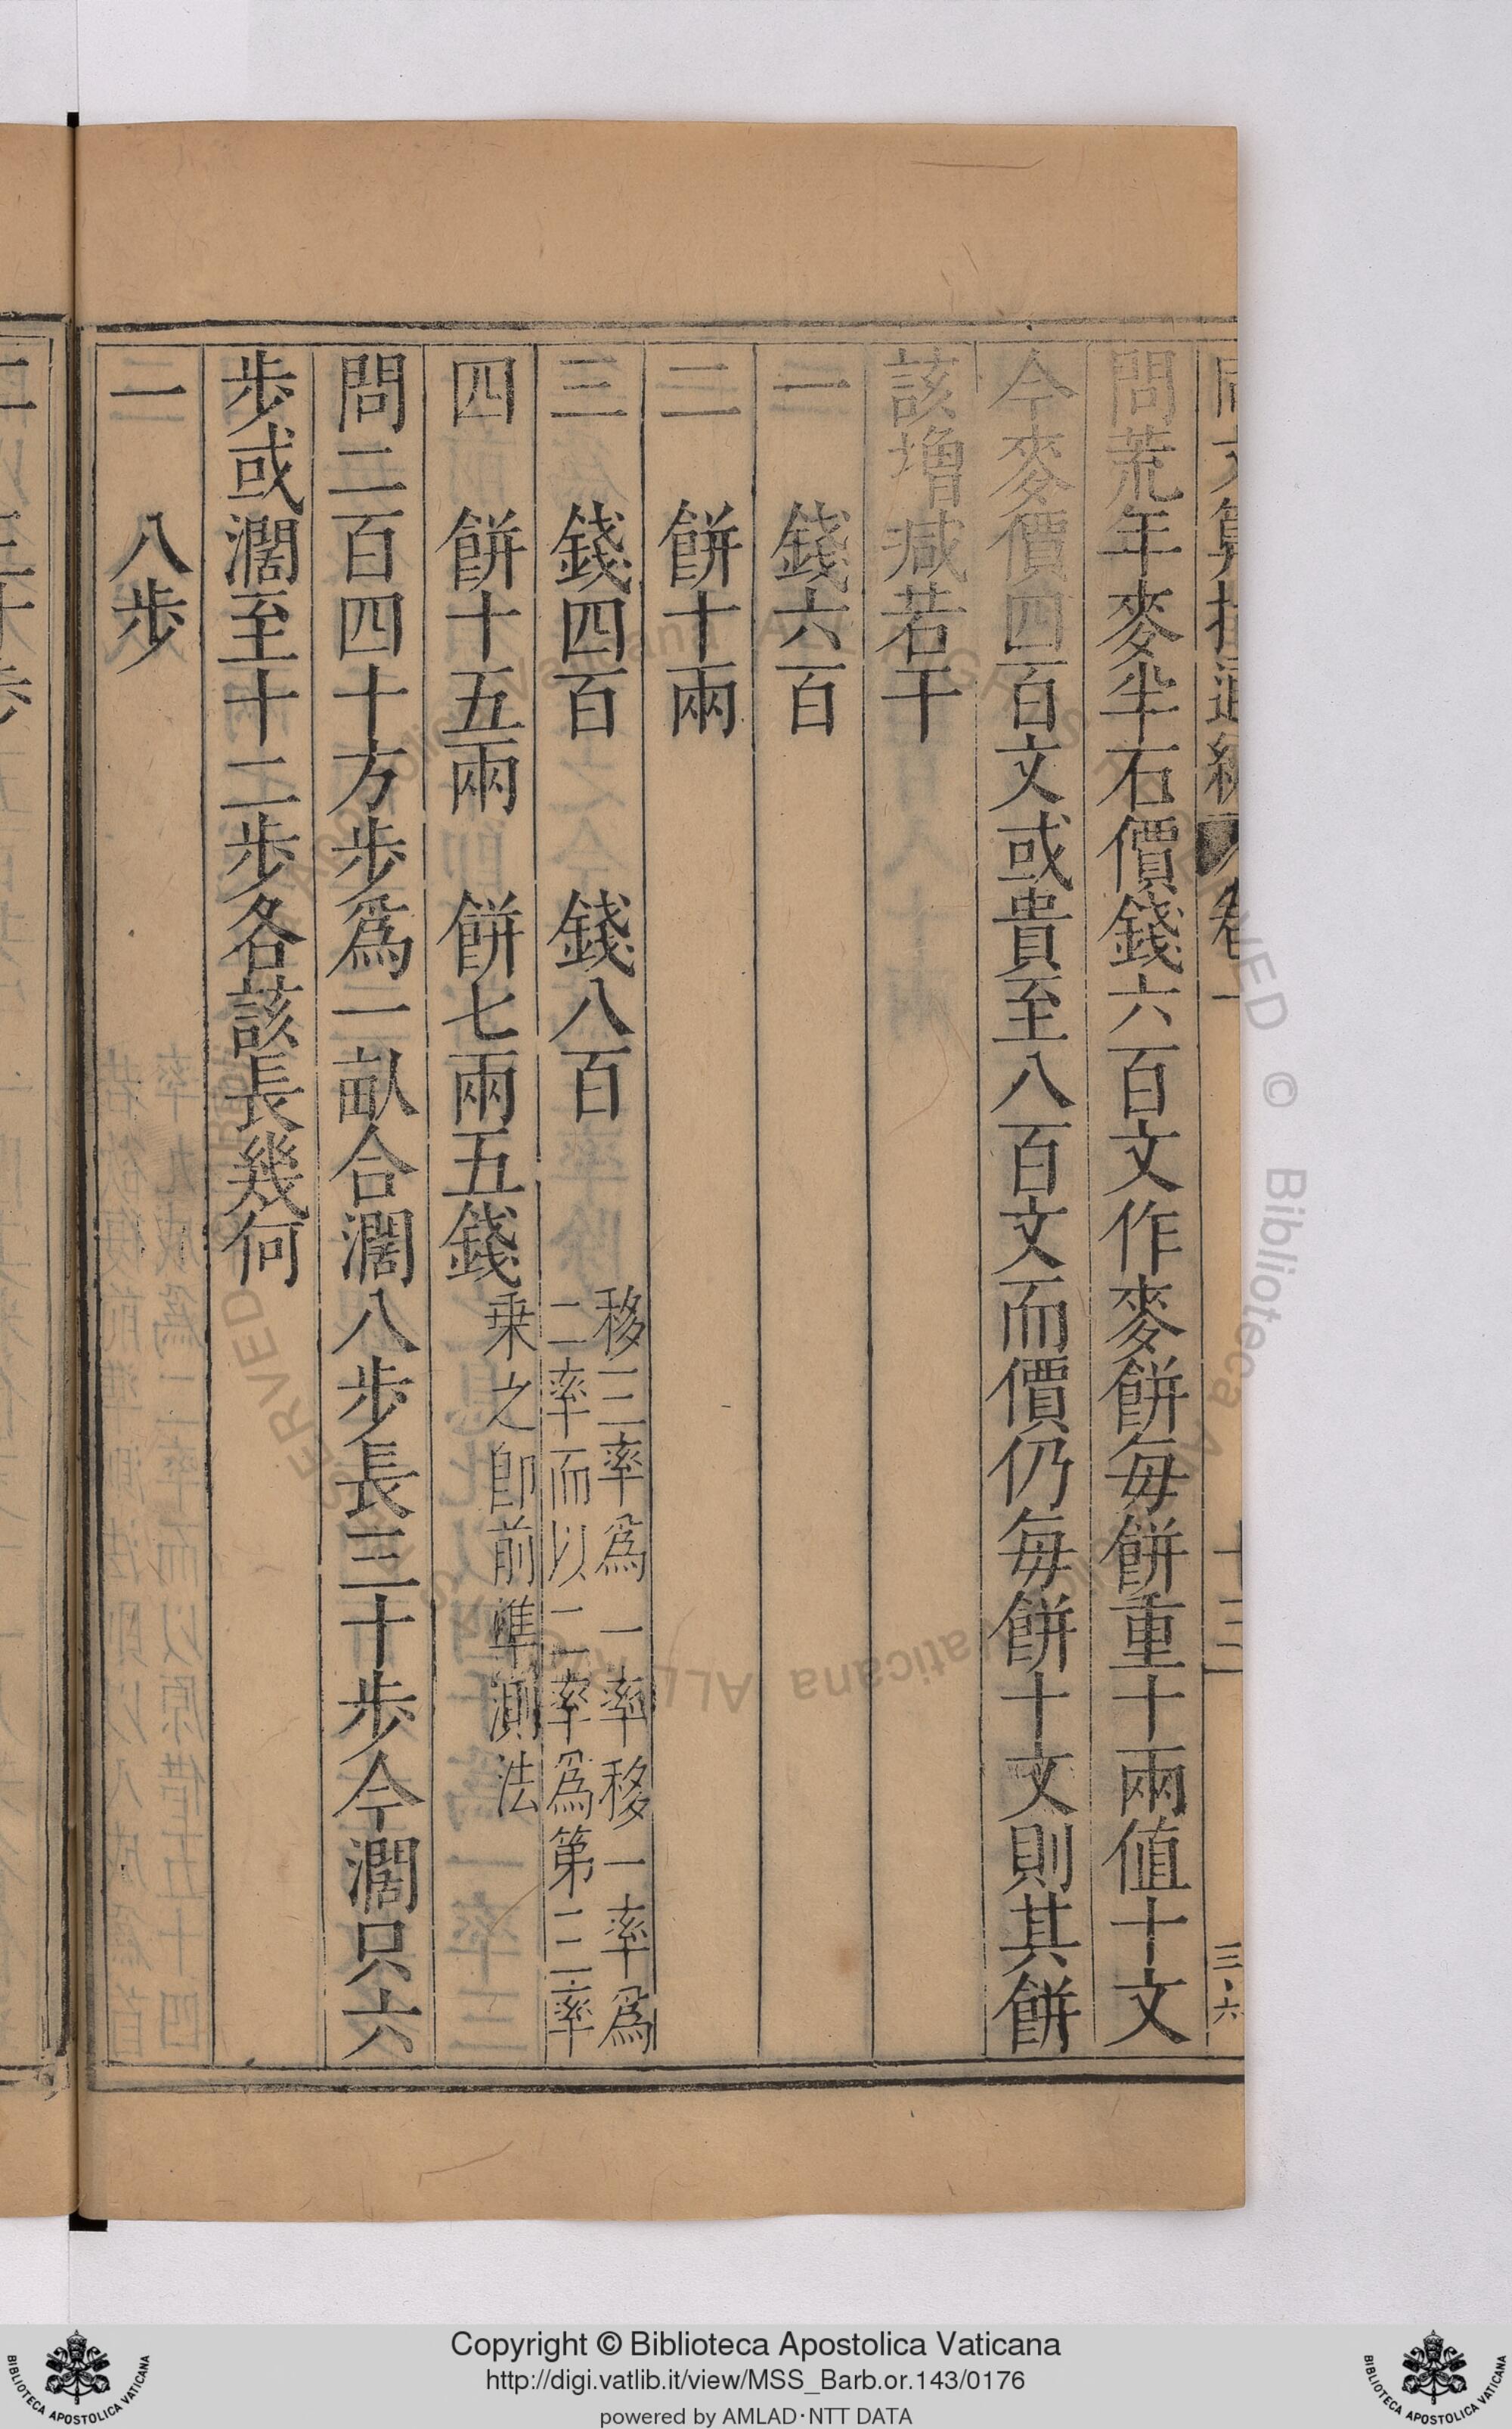 同文算指通編 卷一 十三 三六
問荒年麥半石價錢六百文作麥餅每餅重十兩値十文
今麥價四百文或貴至八百文而價仍每餅十文則其餅
該增減若干
一 錢六百
二 餅十兩
三 錢四百 錢八百 移三率爲一率移一率爲
二率而以二率爲第三率
四 餅十五兩 餅七兩五錢 乗之卽前準測法
問二百四十方步爲一畝合濶八步長三十步今濶只六
步或濶至十二步各該長幾何
一 八步
Copyright © Biblioteca Apostolica Vaticana
http://digi.vatlib.it/view/MSS_Barb.or.143/0176
powered by AMLAD·NTT DATA
BIBLIOTECA APOSTOLICA VATICANA
BIBLIOTECA APOSTOLICA VATICANA